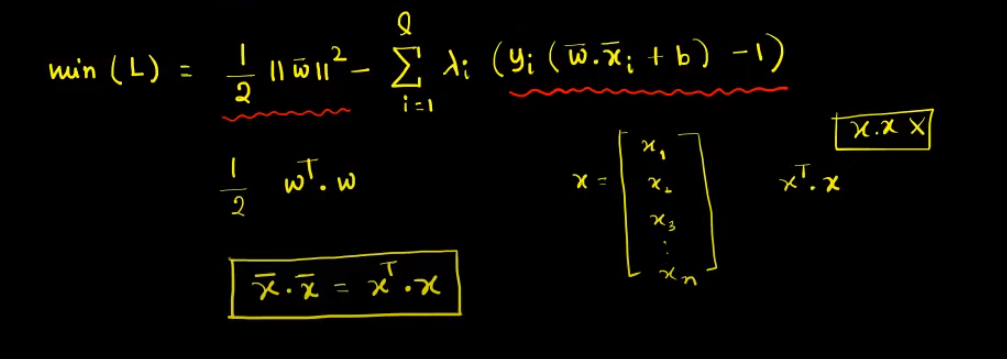 min (L) = 1/2 ||w̄||² - Σ_{i=1}^{l} λi (yi (w̄.x̄i + b) -1)
x.x X
1/2 wᵀ.w
x = [x₁ x₂ x₃ ⋮ xₙ]
xᵀ.x
x̄.x̄ = xᵀ.x